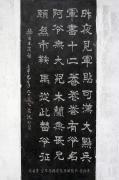 昨夜見軍帖可汗大點兵
軍書十二卷卷卷有爺名
阿爺無大兒木蘭無長兄
願為市鞍馬從此替爺征